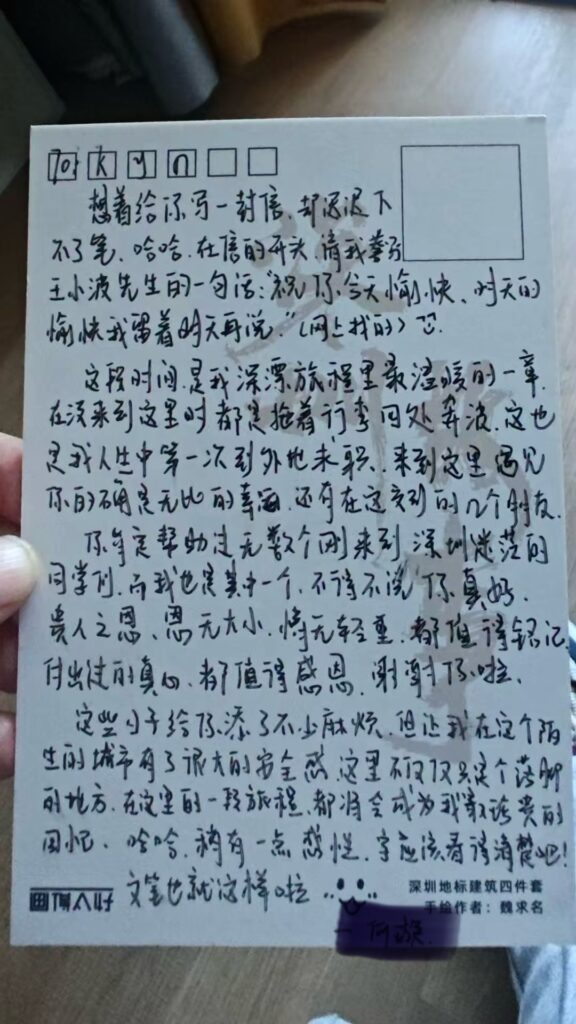 想着给你写一封信,却迟迟下
不了笔、哈哈.在信的开头.请我摹写
王小波先生的一句话:“祝你今天愉快、明天的
愉快我留着明天再说.”(网上找的)
这段时间.是我深漂旅程里最温暖的一章.
在没来到这里时都是拖着行李四处奔波.这也
是我人生中第一次到外地求职.来到这里遇见
你的确是无比的幸运.还有在这交到的几个朋友.
你肯定帮助过无数个刚来到深圳迷茫的
同学们.而我也是其中一个.不得不说你真好.
贵人之恩、恩无大小、情无轻重.都值得铭记
付出过的真心.都值得感恩.谢谢你啦.
这些日子给你添了不少麻烦.但让我在这个陌
生的城市有了很大的安全感.这里不仅仅只是个落脚
的地方.在这里的一段旅程.都将会成为我最珍贵的
回忆.哈哈.稍有一点感性.字应该看得清楚吧!
文笔也就这样啦
深圳地标建筑四件套
手绘作者:魏求名